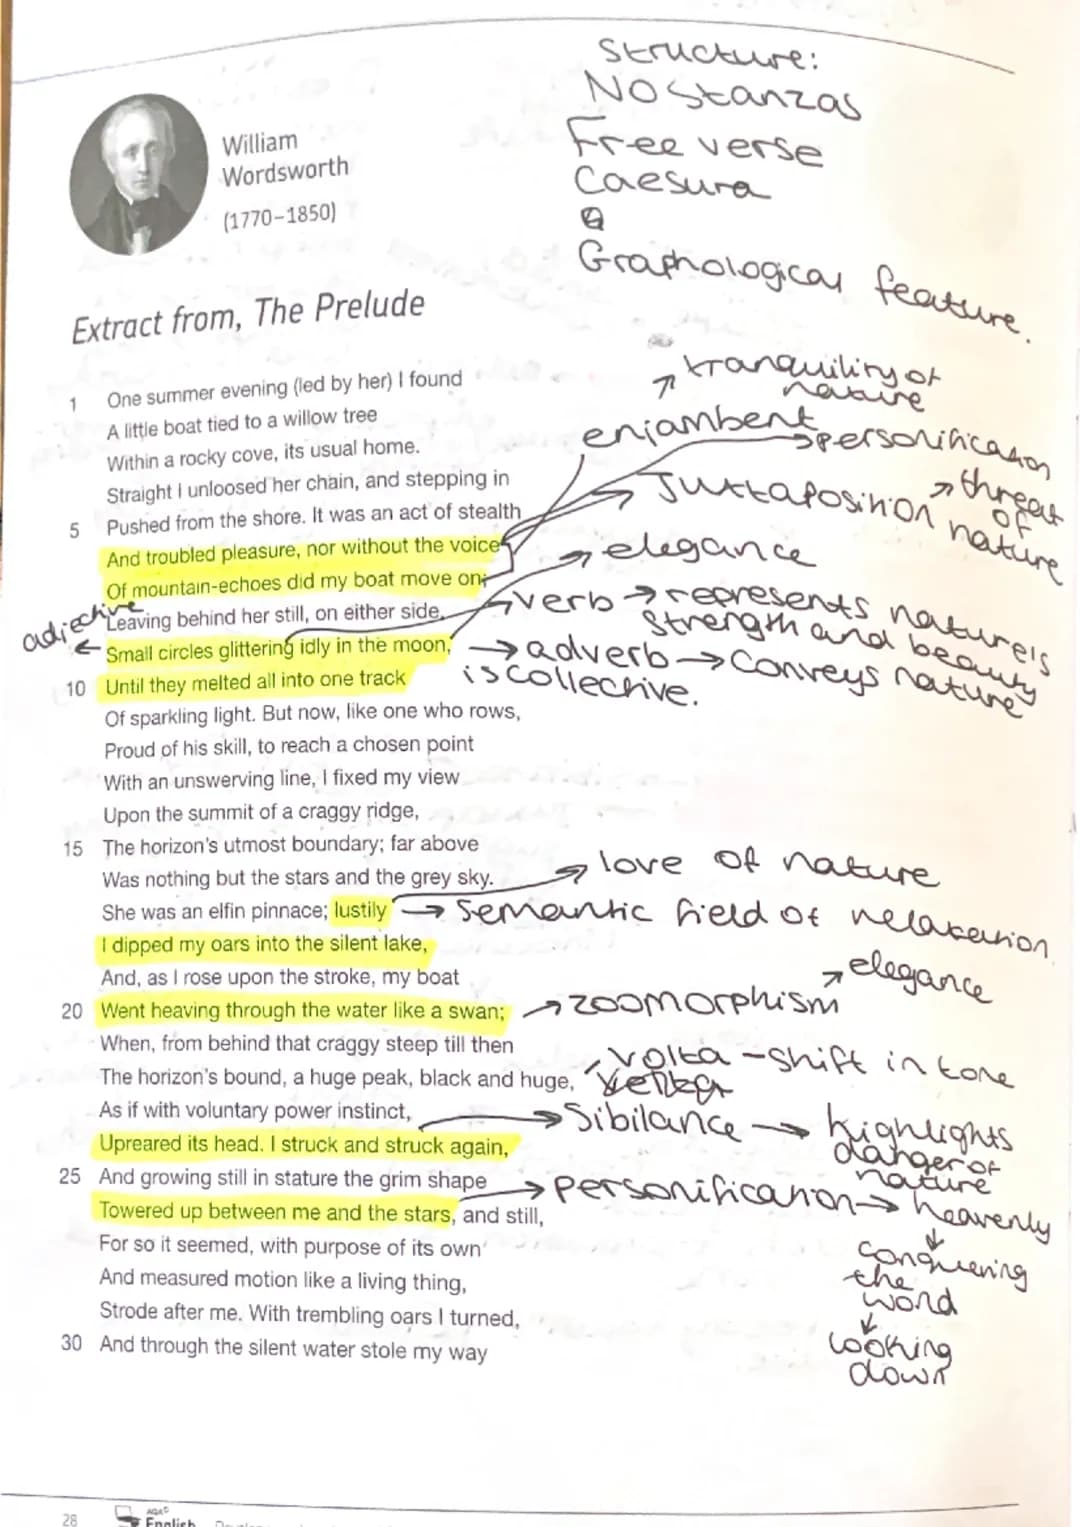 Structure:
No stanzas
Free verse
Caesura
Graphological feature.
William
Wordsworth
(1770–1850)
Extract from, The Prelude
1 One summer evening (led by her) I found
A little boat tied to a willow tree
Within a rocky cove, its usual home.
Straight I unloosed her chain, and stepping in
5 Pushed from the shore. It was an act of stealth
And troubled pleasure, nor without the voice
Of mountain-echoes did my boat move on;
Leaving behind her still, on either side,
Small circles glittering idly in the moon,
10 Until they melted all into one track
Of sparkling light. But now, like one who rows,
Proud of his skill, to reach a chosen point
With an unswerving line, I fixed my view
Upon the summit of a craggy ridge,
15 The horizon's utmost boundary; far above
Was nothing but the stars and the grey sky.
She was an elfin pinnace; lustily
I dipped my oars into the silent lake,
And, as I rose upon the stroke, my boat
20 Went heaving through the water like a swan;
When, from behind that craggy steep till then
The horizon's bound, a huge peak, black and huge,
As if with voluntary power instinct,
Upreared its head. I struck and struck again,
25 And growing still in stature the grim shape
Towered up between me and the stars, and still,
For so it seemed, with purpose of its own
And measured motion like a living thing,
Strode after me. With trembling oars I turned,
30 And through the silent water stole my way
tranquility of
nature
enjambent
personification
Juxtaposition
threat
of
nature
elegance
adjective
verb → represents nature's
strength and beauty
→ adverb → Conveys nature
is collective.
love of nature
→ Semantic field of relaxation
elegance
zoomorphism
volta – shift in tone
Sibilance → highlights
danger of
nature
Personification → heavenly
conquering
the
word
looking
down
28
AQA
English